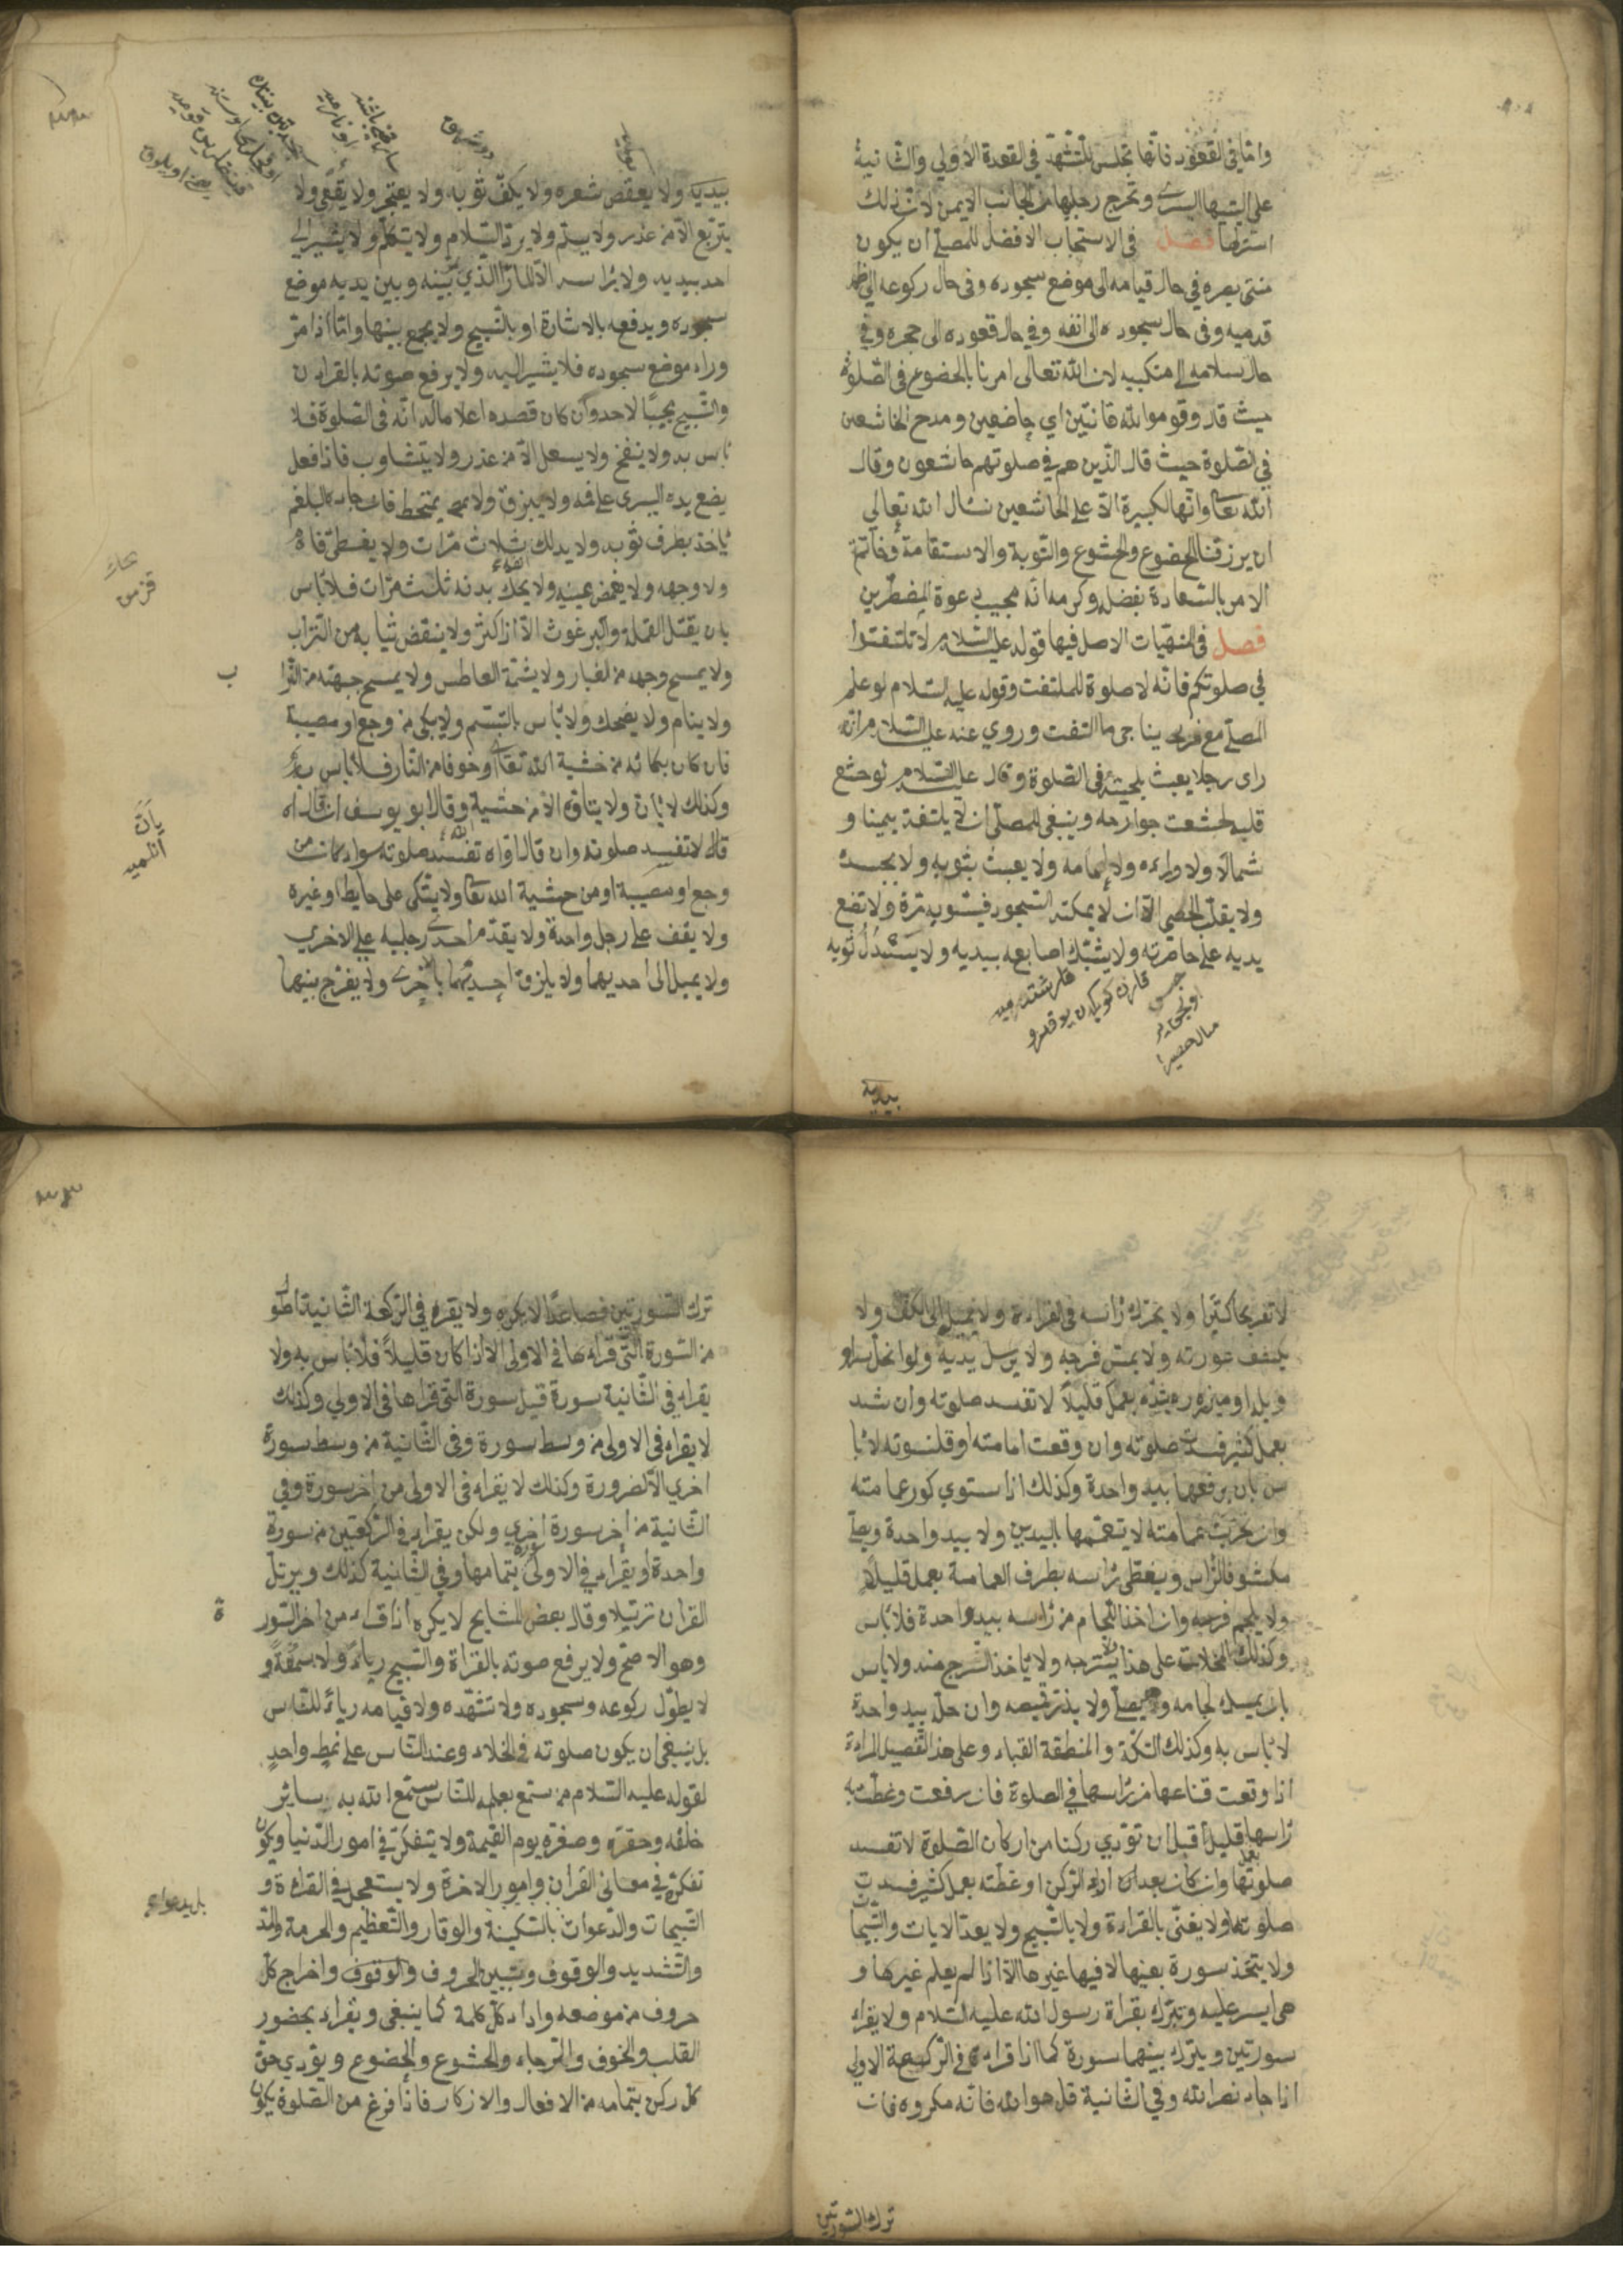 واما في القعود فانها تجلس للتشهد في القعدة الاولي والثانية
على اليتيها اليسري وتخرج رجليها من الجانب الايمن لان ذلك
استرلها فصل في الاستحباب الافضل للمصلي ان يكون
منتهى بصره في حال قيامه الى موضع سجوده وفي حال ركوعه الى ظهر
قدميه وفي حال سجوده الى انفه وفي حال قعوده الى حجره وفي
حال سلامه الى منكبيه لان الله تعالى امرنا بالخضوع في الصلوة
حيث قال وقوموا لله قانتين اي خاضعين ومدح الخاشعين
في الصلوة حيث قال الذين هم في صلوتهم خاشعون وقال
الله تعا وانها لكبيرة الا على الخاشعين نسال الله تعالي
ان يرزقنا الخضوع والخشوع والتوبة والاستقامة وخاتمة
الامر بالسعادة بفضله وكرمه انه مجيب دعوة المضطرين
فصل في المنهيات الاصل فيها قوله عليه السلام لا تلتفتوا
في صلوتكم فانه لا صلوة للملتفت وقوله عليه السلام لو علم
المصلي مع من يناجي ما التفت وروي عنه عليه السلام انه
راى رجلا يعبث بلحيته في الصلوة وقال عليه السلام لو خشع
قلبه لخشعت جوارحه وينبغي للمصلي ان لا يلتفت يمينا و
شمالا ولا وراءه ولا امامه ولا يعبث بثوبه ولا بجسده
ولا يقلب الحصى الا ان لا يمكنه السجود فيسويه مرة ولا تضع
يديه على خاصرته ولا يشبك اصابعه بيديه ولا يسدل ثوبه
بيديه
بيديه ولا يعقص شعره ولا يكف ثوبه ولا يعتجر ولا يقعي ولا
يتربع الا من عذر ولا يسلم ولا يرد السلام ولا يتكلم ولا يشير الى
احد بيديه ولا براسه الا المار الذي بينه وبين يديه موضع
سجوده ويدفعه بالاشارة او بالتسبيح ولا يجمع بينها واما اذا مر
وراء موضع سجوده فلا يشير اليه ولا يرفع صوته بالقران
والتسبيح مجيبا لاحد وان كان قصده اعلاما له انه في الصلوة فلا
باس به ولا ينفخ ولا يسعل الا من عذر ولا يتثاوب فاذا فعل
يضع يده اليسرى على فمه ولا يبزق ولا يمتخط فان جاء البلغم
ياخذ بطرف ثوبه ولا يدلك بثلاث مرات ولا يغطي فاه
ولا وجهه ولا يغمض عينيه ولا يحك بدنه ثلث مرات فلا باس
بان يقتل القملة والبرغوث الا اذا كثر ولا ينقض ثيابه من التراب
ولا يمسح وجهه من الغبار ولا يشمت العاطس ولا يمسح جبهته من الترا
ب
ولا ينام ولا يضحك ولا باس بالتبسم ولا يبكي من وجع او مصيبة
فان كان بكائه من خشية الله تعالى او خوفا من النار فلا باس به
وكذلك لا يان ولا يتاوه الا من خشية وقال ابو يوسف ان قال اه
قال لا تفسد صلوته وان قال اواه تفسد صلوته سواء كانت من
وجع او مصيبة او من خشية الله تعا ولا يتكى على حايط او غيره
ولا يقف على رجل واحدة ولا يقدم احدي رجليه على الاخري
ولا يميل الى احديهما ولا يلزق احديهما بالاخري ولا يفرج بينهما
لا تفريجا كثيرا ولا يحرك راسه في القراءة ولا يميل الى الكف ولا
يكشف عورته ولا يمس فرجه ولا يرسل يديه ولو انحل سراو
ويله او ميزره يشده بعمل قليلا لا تفسد صلوته وان شد
بعمل كثير فسدت صلوته وان وقعت عمامته او قلنسوته لا با
س بان يرفعها بيد واحدة وكذلك اذا استوي كور عمامته
وان خربت عمامته لا يتعممها باليدين ولا بيد واحدة ويصلي
مكشوف الراس ويغطي راسه بطرف العمامة بعمل قليل
ولا يلجم فرسه وان اخذ اللجام من راسه بيد واحدة فلا باس
وكذلك المخلات على هذا ولا يسرجه ولا ياخذ السرج منه ولا باس
بان يمسك لجامه ويصلي ولا يزر قميصه وان حل بيد واحدة
لا باس به وكذلك التكة والمنطقة القباء وعلى هذا التفصيل المراءة
اذا وقعت قناعها من راسها في الصلوة فان رفعت وغطت به
راسها قليلا قبل ان تؤدي ركنا من اركان الصلوة لا تفسد
صلوتها وان كان بعد اداء الركن او غطته بعمل كثير فسدت
صلوتها ولا يغني بالقراءة ولا بالتسبيح ولا يعد الايات والتسبيحات
ولا يتخذ سورة بعينها لا فيها غيرها الا اذا لم يعلم غيرها و
هي ايسر عليه وتبرك بقراة رسول الله عليه السلام ولا يقراء
سورتين ويترك بينهما سورة كما اذا قراءه في الركعة الاولى
اذا جاء نصر الله وفي الثانية قل هو الله فانه مكروه فان
ترك السورتين
ترك السورتين فصاعدا لا يكره ولا يقره في الركعة الثانية اطول
من السورة التي قراءها في الاولى الا اذا كان قليلا فلا باس به ولا
يقراء في الثانية سورة قبل سورة التي قراها في الاولي وكذلك
لا يقراء في الاولى من وسط سورة وفي الثانية من وسط سورة
اخري الا لضرورة وكذلك لا يقراء في الاولى من اخر سورة وفي
الثانية من اخر سورة اخري ولكن يقراء في الركعتين من سورة
واحدة او يقراء في الاولى سورة بتمامها وفي الثانية كذلك ويرتل
القران ترتيلا وقال بعض المشايخ لا يكره اذا قراء من اخر السور
ة
وهو الاصح ولا يرفع صوته بالقراة والتسبيح رياء ولا سمعة و
لا يطول ركوعه وسجوده ولا تشهده ولا قيامه رياء للناس
بل ينبغي ان يكون صلوته في الخلاء وعند الناس على نمط واحد
لقوله عليه السلام من سمع بعلمه للناس سمع الله به سائر
خلقه وحقره وصغره يوم القيمة ولا يتفكر في امور الدنيا ويكون
تفكره في معاني القران وامور الاخرة ولا يستعجل في القراءة و
التسبيحات والدعوات بالسكينة والوقار والتعظيم والحرمة والمد
والتشديد والوقوف وتبيين الحروف والوقوف واخراج كل
حروف من موضعه واداء كل كلمة كما ينبغي ويقراء بحضور
القلب والخوف والرجاء والخشوع والخضوع ويؤدي حق
كل ركن بتمامه من الافعال والاذكار فاذا فرغ من الصلوة يكون